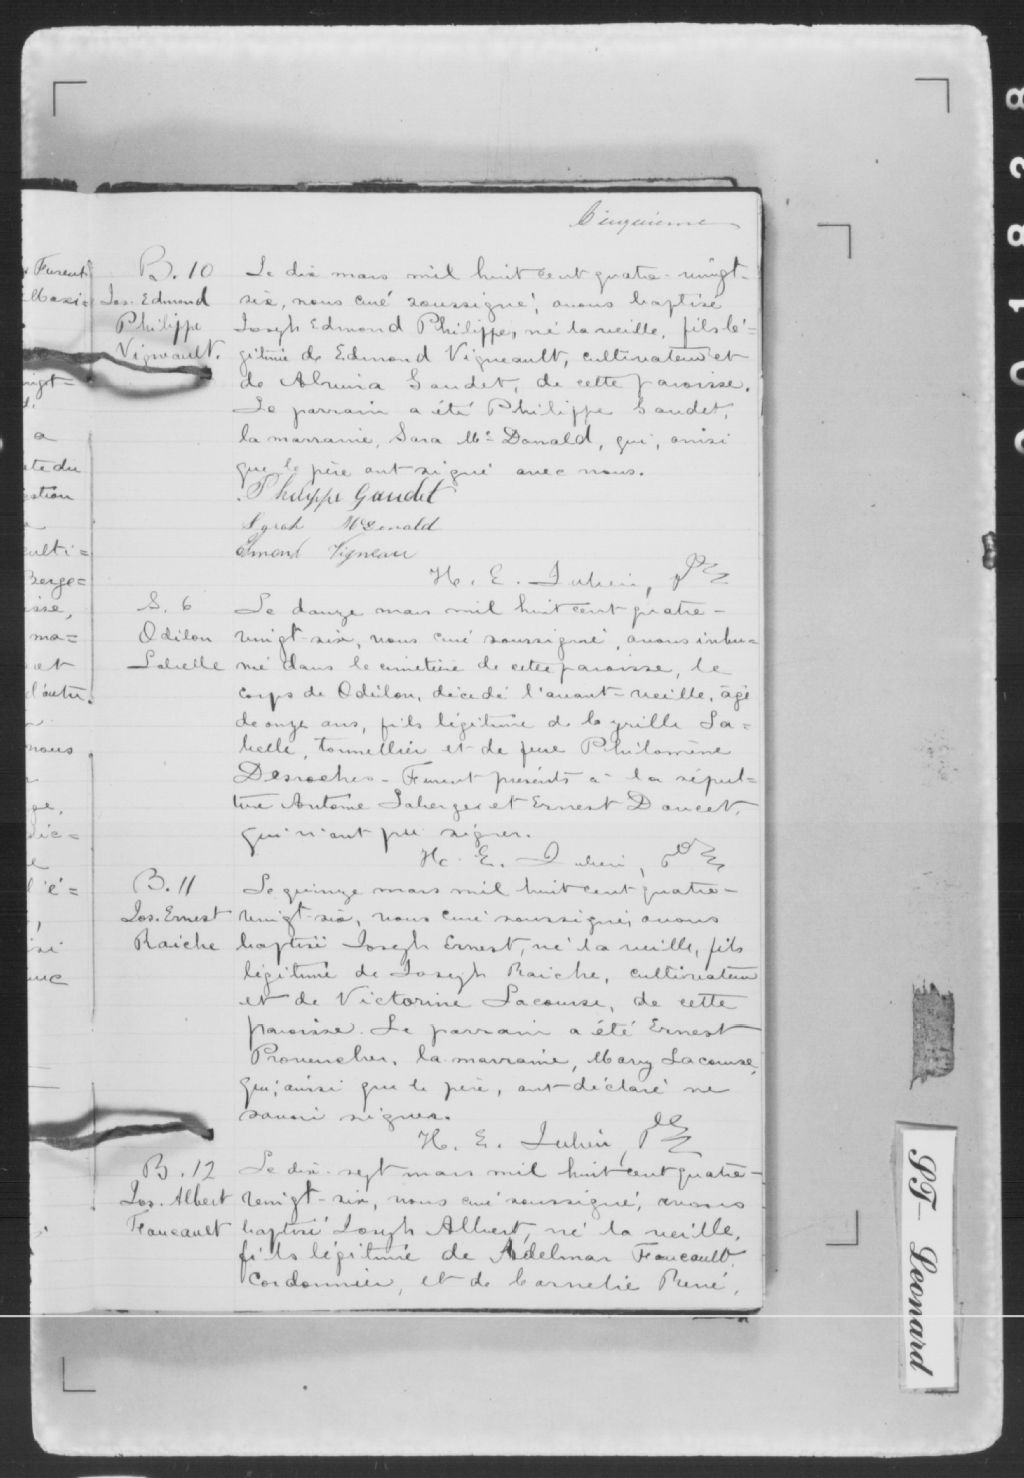 Cinquième
B. 10
Jos. Edmond
Philippe
Vigneault.
Le dix mars mil huit cent quatre-vingt-
six, nous curé soussigné, avons baptisé
Joseph Edmond Philippe, né la veille, fils lé=
gitime de Edmond Vigneault, cultivateur et
de Gaudet, de cette paroisse.
Le parrain a été Philippe Gaudet,
la marraine, Sara Mc Donald, qui, ainsi
que le père ont signé avec nous.
Philippe Gaudet
McDonald
Vigneau
H. E. Julien, Ptre
S. 6
Odilon
Labelle
Le douze mars mil huit cent quatre-
vingt-six, nous curé soussigné, avons inhu=
mé dans le cimetière de cette paroisse, le
corps de Odilon, décédé l'avant-veille, âgé
de onze ans, fils légitime de Cyrille La=
belle, tonnellier et de feue Philomène
Desroches. Furent présents à la sépul=
ture Antoine Laberge et Ernest Doucet,
qui n'ont pu signer.
H. E. Julien, Ptre
B. 11
Jos. Ernest
Raiche
Le quinze mars mil huit cent quatre-
vingt-six, nous curé soussigné, avons
baptisé Joseph Ernest, né la veille, fils
légitime de Joseph Raiche, cultivateur
et de Victorine Lacourse, de cette
paroisse. Le parrain a été Ernest
Provencher, la marraine, Mary Lacourse,
qui, ainsi que le père, ont déclaré ne
savoir signer.
H. E. Julien, Ptre
B. 12
Jos. Albert
Foucault
Le dix-sept mars mil huit cent quatre-
vingt-six, nous curé soussigné, avons
baptisé Joseph Albert, né la veille,
fils légitime de Adelmar Foucault,
cordonnier, et de Carnelie René,
Furent
a
ete du
estion
culti=
Berge=
isse,
ma=
et
l'autre
nous
l'é=
St- Leonard